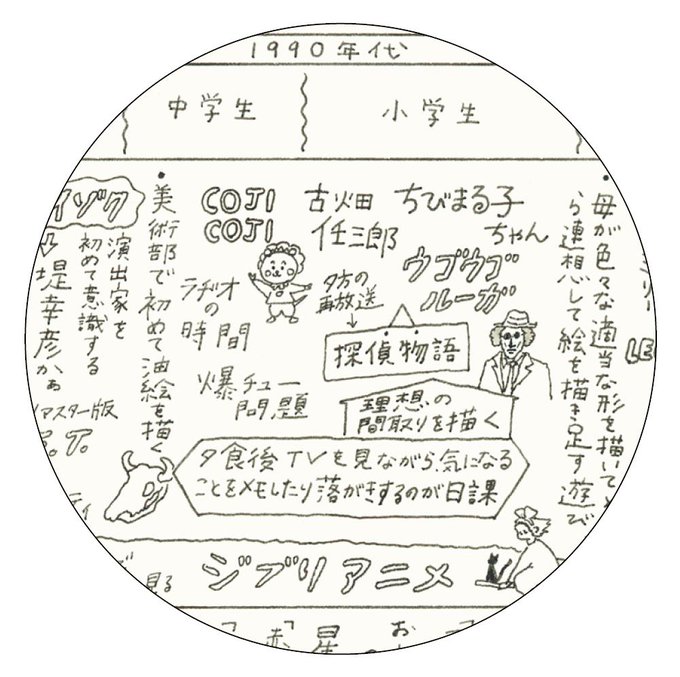 1990年代
中学生
小学生
・母が色々な適当な形を描いて
ら連想して絵を描き足す遊び
ちびまる子
ちゃん
ウゴウゴ
ルーガ
古畑
任三郎
夕方の
再放送
↓
探偵物語
理想の
間取りを描く
COJI
COJI
ラヂオ
の
時間
爆チュー
問題
夕食後TVを見ながら、気になる
ことをメモしたり落がきするのが日課
・美術部で初めて油絵を描く
イゾク
演出家を
初めて意識する
堤幸彦かぁ
マスター版
.T.
ティ
見る
ジブリアニメ
LE
「赤
星
お